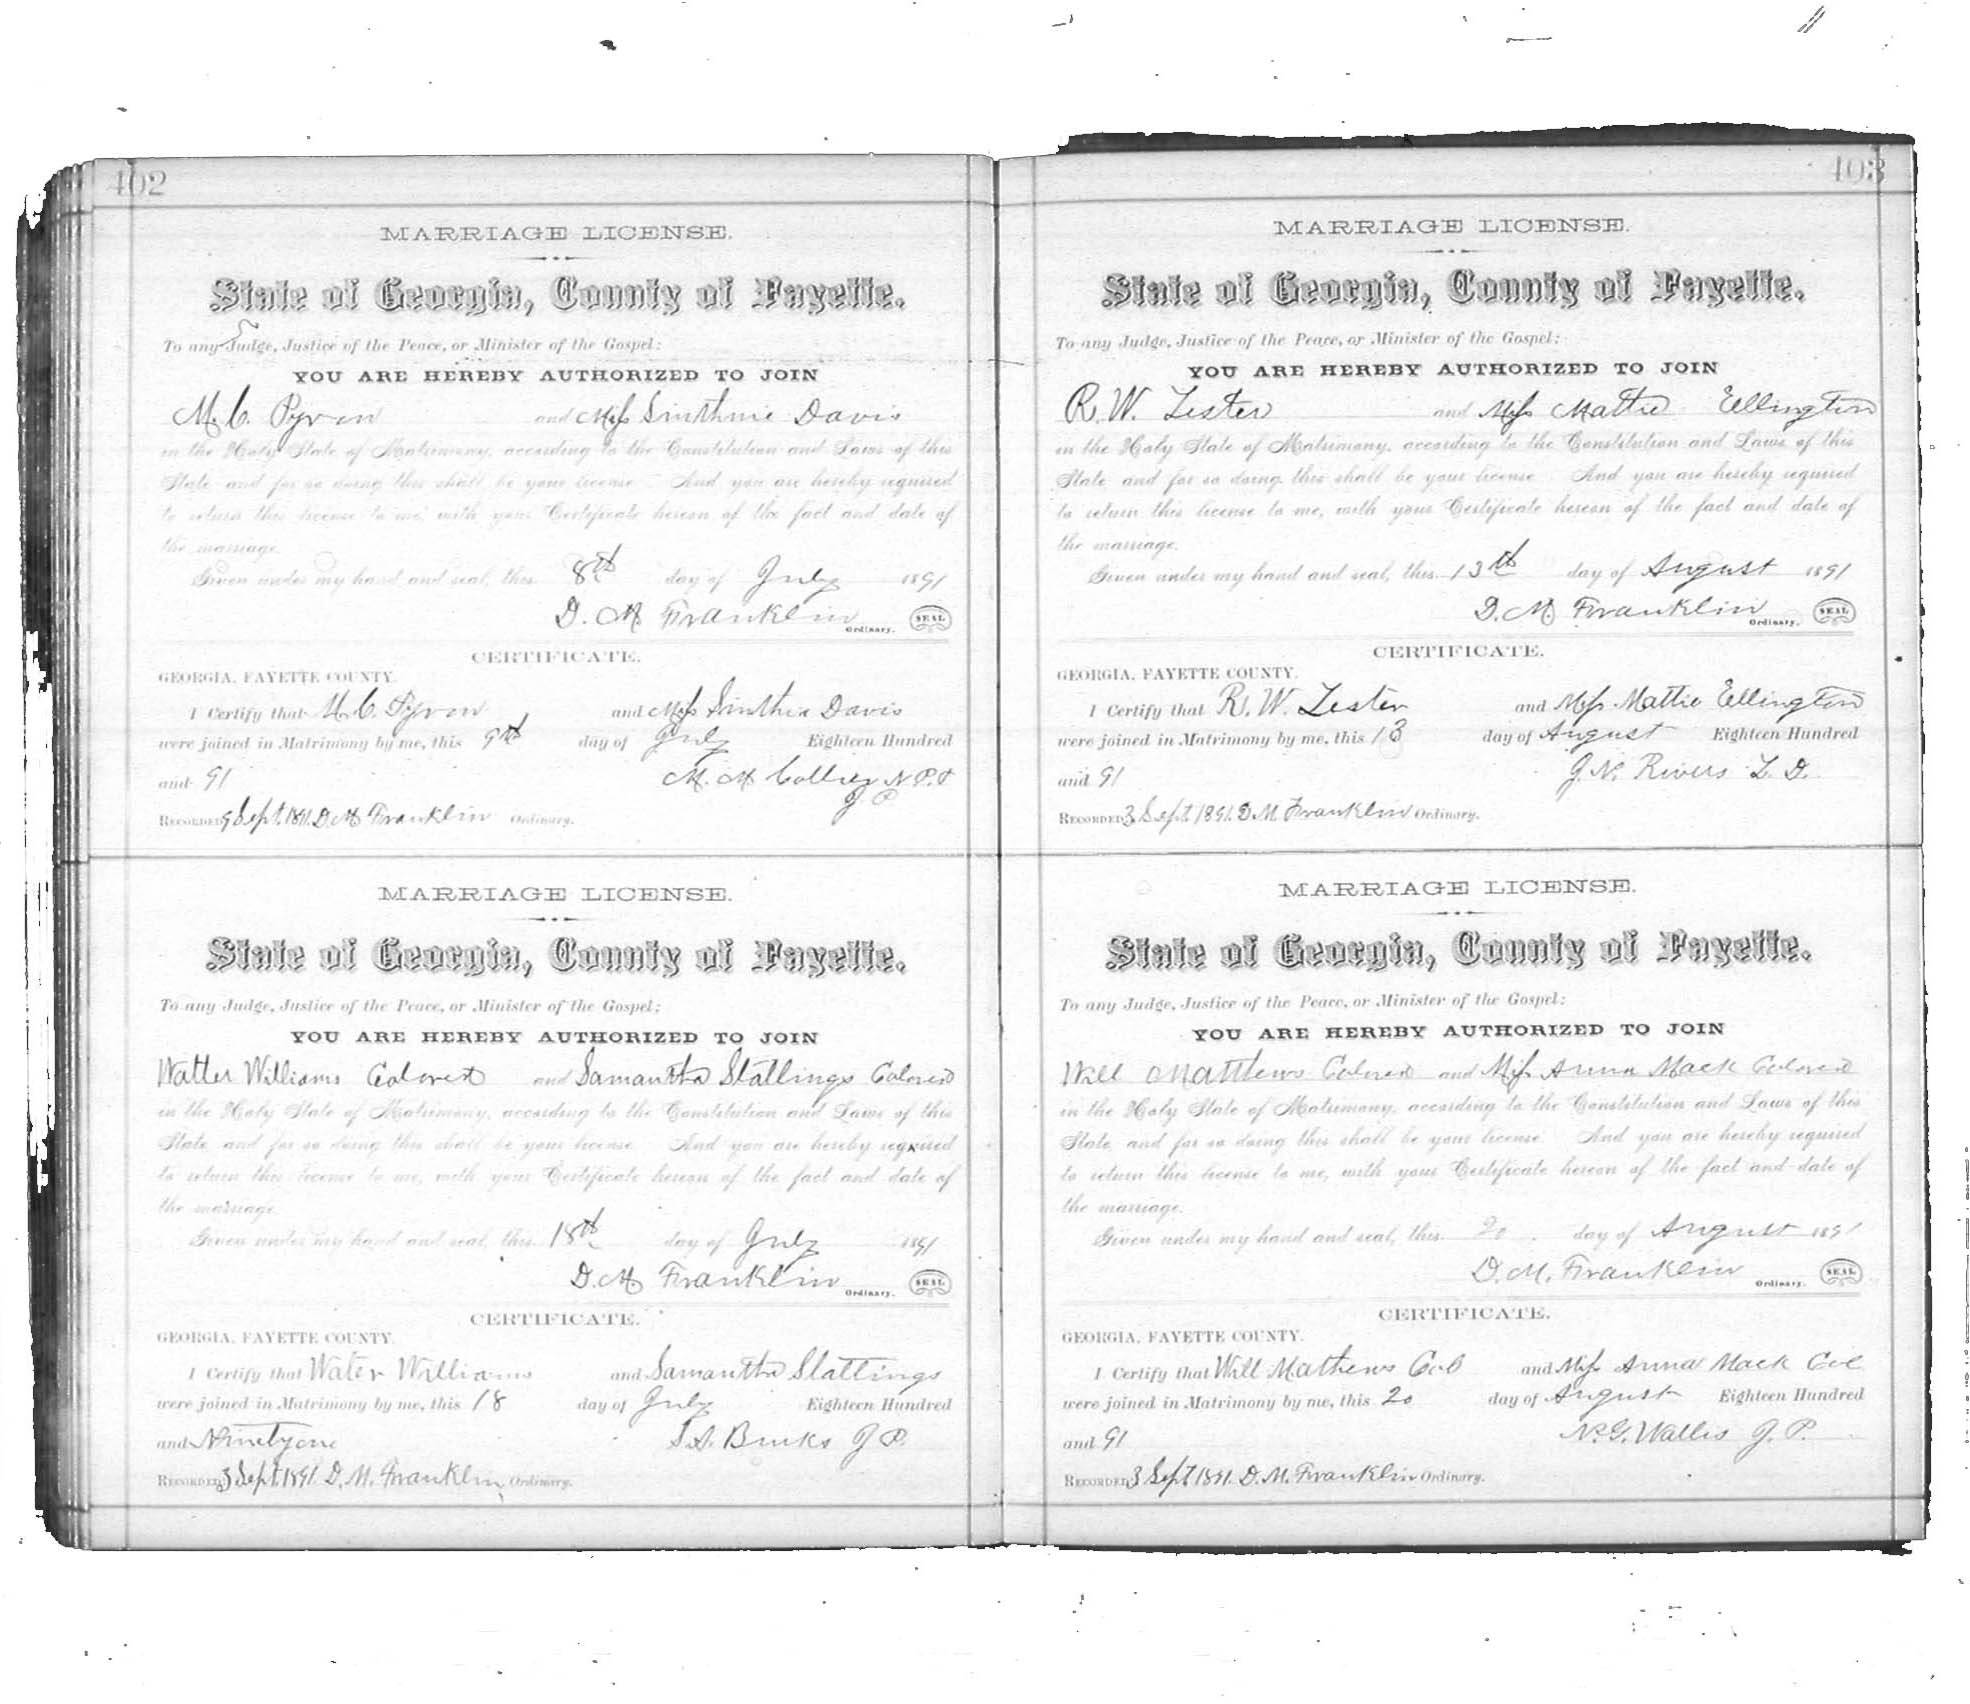 402
MARRIAGE LICENSE.
State of Georgia, County of Fayette.
To any Judge, Justice of the Peace, or Minister of the Gospel:
YOU ARE HEREBY AUTHORIZED TO JOIN
M. C. Pyron and Miss Sinthnie Davis
in the Holy State of Matrimony, according to the Constitution and Laws of this
State and for so doing this shall be your license And you are hereby required
to return this license to me, with your Certificate hereon of the fact and date of
the marriage.
Given under my hand and seal, this 8th day of July 1891
D. M. Franklin Ordinary. SEAL
CERTIFICATE.
GEORGIA, FAYETTE COUNTY.
I Certify that M. C. Pyron and Miss Sinthia Davis
were joined in Matrimony by me, this 9th day of July Eighteen Hundred
and 91 M. M. Collier N. P. &
J P
RECORDED 9 Sept. 1891. D. M. Franklin Ordinary.
MARRIAGE LICENSE.
State of Georgia, County of Fayette.
To any Judge, Justice of the Peace, or Minister of the Gospel:
YOU ARE HEREBY AUTHORIZED TO JOIN
Walter Williams Colored and Samantha Stallings Colored
in the Holy State of Matrimony, according to the Constitution and Laws of this
State and for so doing this shall be your license And you are hereby required
to return this license to me, with your Certificate hereon of the fact and date of
the marriage.
Given under my hand and seal, this 18th day of July 1891
D. M. Franklin Ordinary. SEAL
CERTIFICATE.
GEORGIA, FAYETTE COUNTY.
I Certify that Water Williams and Samantha Stallings
were joined in Matrimony by me, this 18 day of July Eighteen Hundred
and Ninetyone Burks J P.
RECORDED 3 Sept. 1891. D. M. Franklin, Ordinary.
403
MARRIAGE LICENSE.
State of Georgia, County of Fayette.
To any Judge, Justice of the Peace, or Minister of the Gospel:
YOU ARE HEREBY AUTHORIZED TO JOIN
R. W. Lester and Miss Mattie Ellington
in the Holy State of Matrimony, according to the Constitution and Laws of this
State and for so doing this shall be your license And you are hereby required
to return this license to me, with your Certificate hereon of the fact and date of
the marriage.
Given under my hand and seal, this 13th day of August 1891
D. M. Franklin Ordinary. SEAL
CERTIFICATE.
GEORGIA, FAYETTE COUNTY.
I Certify that R. W. Lester and Miss Mattie Ellington
were joined in Matrimony by me, this 13 day of August Eighteen Hundred
and 91 J. N. Rivers L. D.
RECORDED 3 Sept. 1891. D. M. Franklin Ordinary.
MARRIAGE LICENSE.
State of Georgia, County of Fayette.
To any Judge, Justice of the Peace, or Minister of the Gospel:
YOU ARE HEREBY AUTHORIZED TO JOIN
Will Matthews Colored and Miss Anna Mack Colored
in the Holy State of Matrimony, according to the Constitution and Laws of this
State and for so doing this shall be your license And you are hereby required
to return this license to me, with your Certificate hereon of the fact and date of
the marriage.
Given under my hand and seal, this 20 day of August 1891
D. M. Franklin Ordinary. SEAL
CERTIFICATE.
GEORGIA, FAYETTE COUNTY.
I Certify that Will Mathews Col and Miss Anna Mack Col
were joined in Matrimony by me, this 20 day of August Eighteen Hundred
and 91 N. G. Wallis J. P.
RECORDED 3 Sept 1891. D. M. Franklin Ordinary.